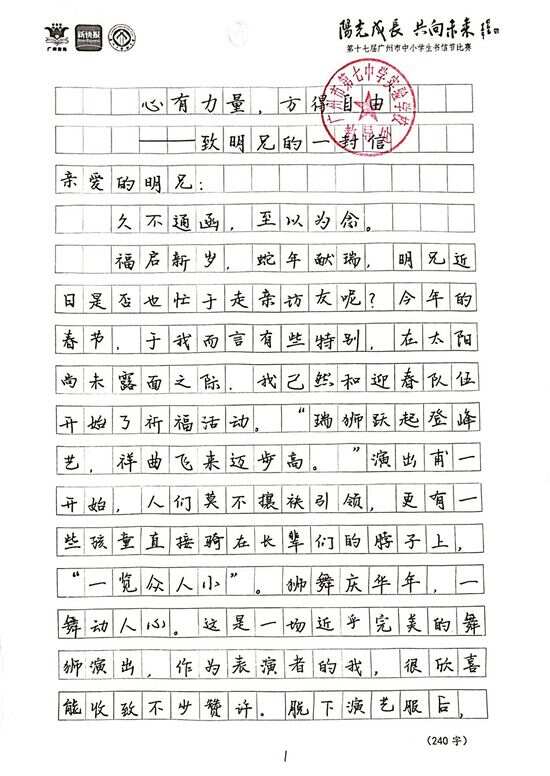 新快报
阳光成长 共向未来
第十七届广州市中小学生书信节比赛
广州市第七中学实验学校
心有力量，方得自由
——致明兄的一封信
亲爱的明兄：
久不通函，至以为念。
福启新岁，蛇年献瑞，明兄近
日是否也忙于走亲访友呢？今年的
春节，于我而言有些特别，在太阳
尚未露面之际，我已然和迎春队伍
开始了祈福活动。“瑞狮跃起登峰
艺，祥曲飞来迈步高。”演出甫一
开始，人们莫不攘袂引领，更有一
些孩童直接骑在长辈们的脖子上，
“一览众人小”。狮舞庆华年，一
舞动人心。这是一场近乎完美的舞
狮演出，作为表演者的我，很欣喜
能收致不少赞许。脱下演艺服后，
（240字）
1